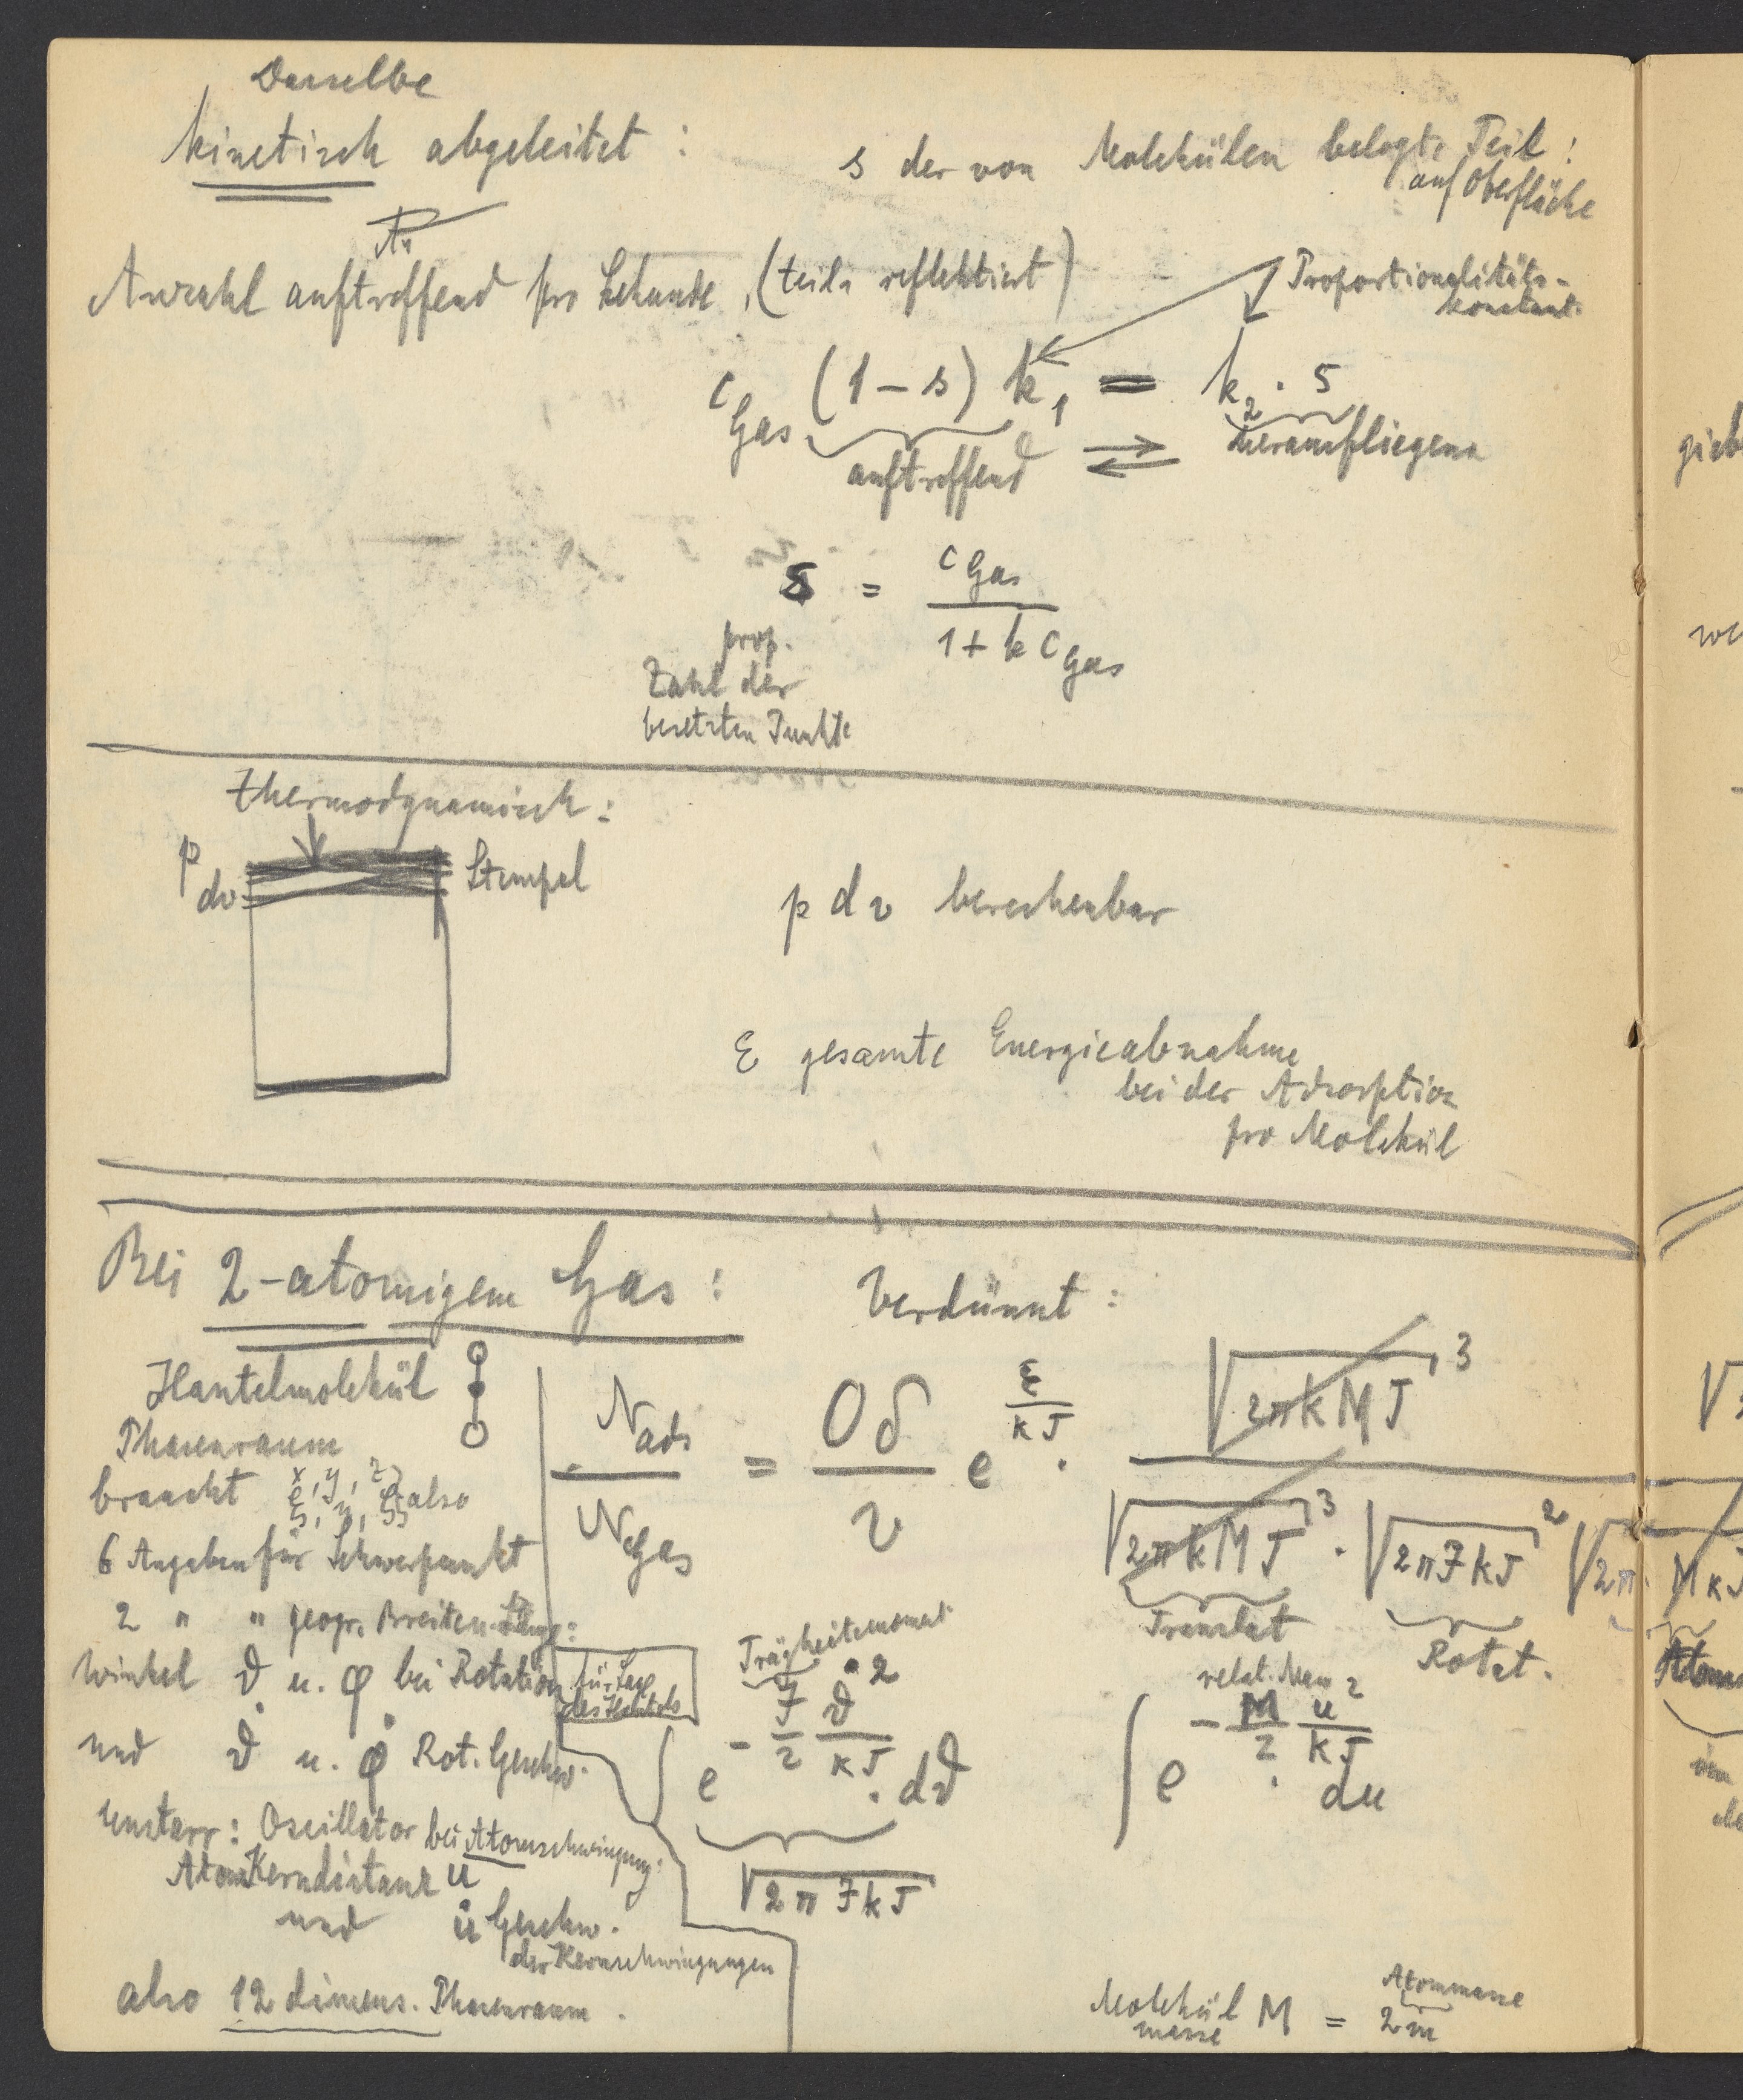 Dasselbe
kinetisch abgeleitet :
s der von Molekülen belegte Teil :
auf Oberfläche
Anzahl auftreffend pro Sekunde, (teils reflektiert)
Proportionalitäts-
konstant.
c Gas (1 – s) k₁ = k₂ · s
auftreffend ⇄ herausfliegend
s = c Gas / 1 + k c Gas
prop.
Zahl der
besetzten Punkte
thermodynamisch :
p
dv
Stempel
p dv berechenbar
ε gesamte Energieabnahme
bei der Adsorption
pro Molekül
Bei 2-atomigem Gas : Verdünnt :
Hantelmolekül
Phasenraum
braucht x, y, z, ξ, η, ζ also
6 Angaben für Schwerpunkt
2 " " geogr. Breiten-Länge :
Winkel ϑ u. φ bei Rotation
für Lage
des Hantels
und ϑ̇ u. φ̇ Rot. Geschw.
unstarr : Oscillator bei Atomschwingung :
Atom Kerndistanz u
und u̇ Geschw.
der Kernschwingungen
also 12 dimens. Phasenraum .
N ads / N Gas = Oδ / v e^(ε/kT) · √(2πkMT)³ / √(2πkMT)³ · √(2πJkT)² √(2π M kT
Translat
Rotat.
Trägheitsmoment
∫ e^(– J/2 ϑ̇²/kT) · dϑ̇
√(2πJkT)
relat. Men
∫ e^(– M/2 u²/kT) · du
Molekül
masse M = 2m
Atommasse